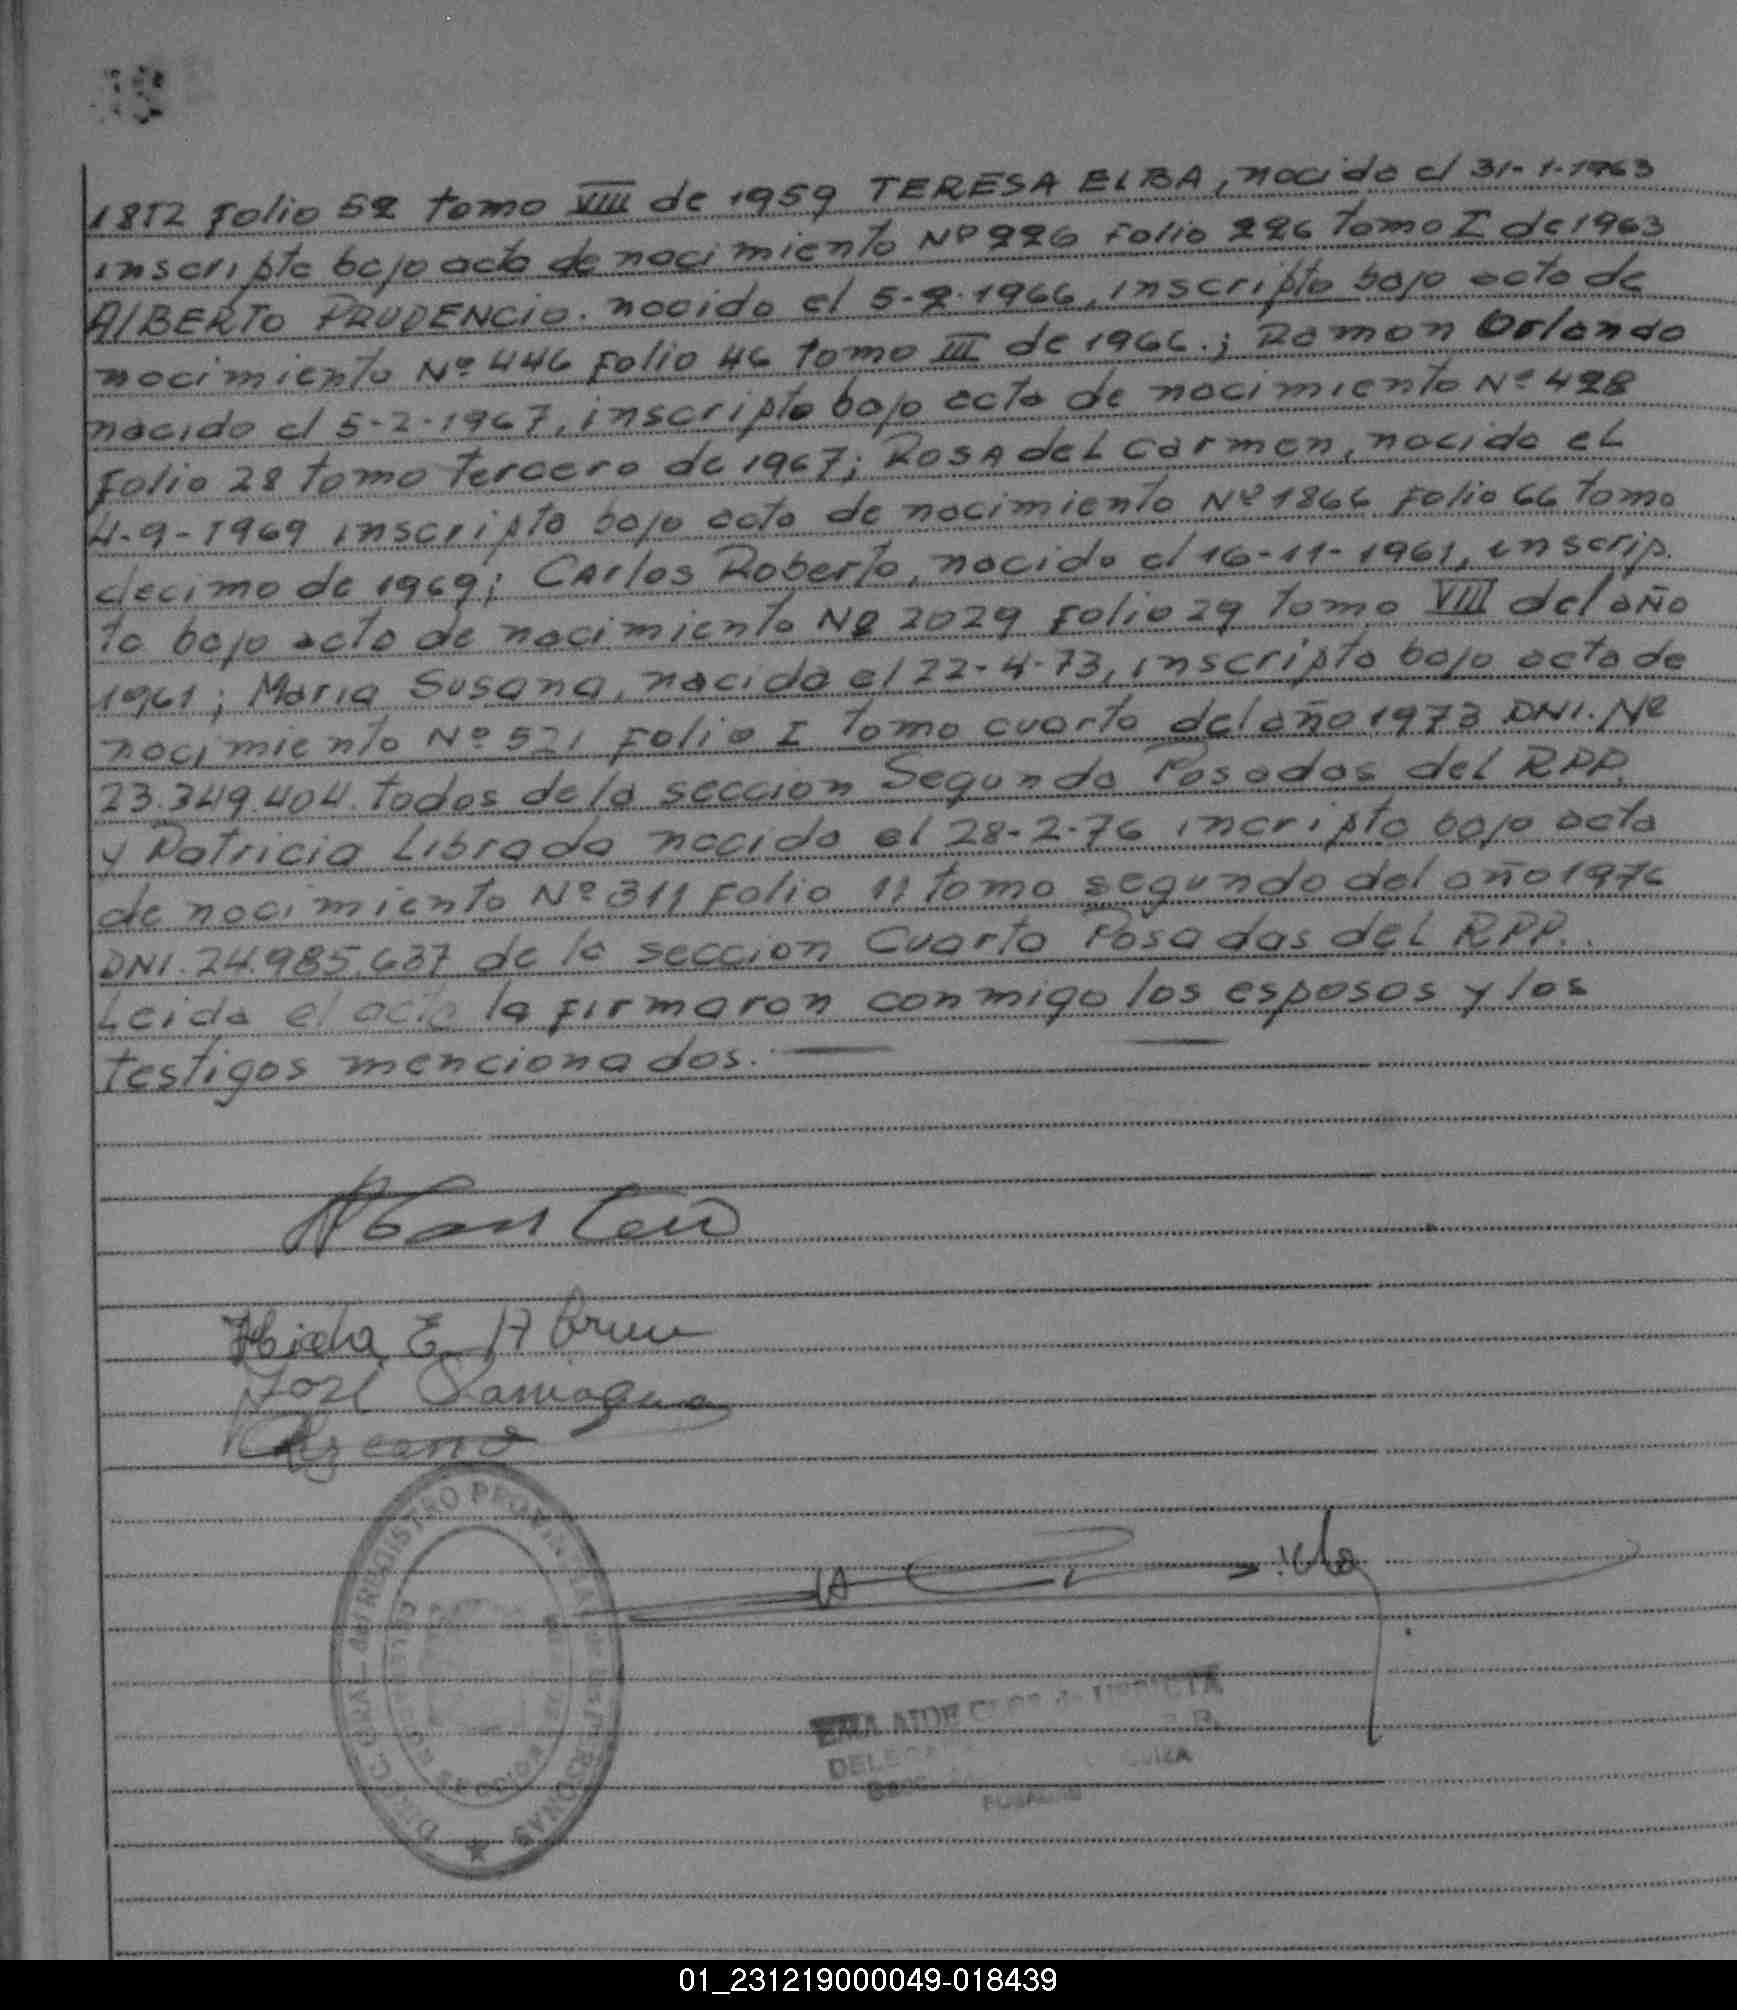 1852 Folio 52 tomo VIII de 1959 TERESA ELBA, nacida el 31-1-1963
inscripta bajo acta de nacimiento Nº 226 Folio 226 tomo I de 1963
AlBERTO PRUDENCIO. nacido el 5-2-1966, inscripto bajo acta de
nacimiento Nº 446 Folio 46 tomo III de 1966.; Ramon Orlando
nacido el 5-2-1967, inscripto bajo acta de nacimiento Nº 428
Folio 28 tomo tercero de 1967; ROSA del Carmen, nacida el
4-9-1969 inscripta bajo acta de nacimiento Nº 1866 Folio 66 tomo
decimo de 1969; Carlos Roberto, nacido el 16-11-1961, inscrip.
to bajo acta de nacimiento Nº 2029 Folio 29 tomo VIII del año
1961; Maria Susana, nacida el 22-4-73, inscripta bajo acta de
nacimiento Nº 521 Folio I tomo cuarto del año 1973 DNI. Nº
23.349.404. todos de la seccion Segunda Posadas del RPP.
y Patricia Librada nacida el 28-2-76 incripta bajo acta
de nacimiento Nº 311 Folio 11 tomo segundo del año 1976
DNI. 24.985.637 de la seccion Cuarta Posadas del RPP..
Leida el acta la firmaron conmigo los esposos y los
testigos mencionados.
E.
José
REGISTRO PROVINCIAL DE LAS PERSONAS
POSADAS
01_231219000049-018439